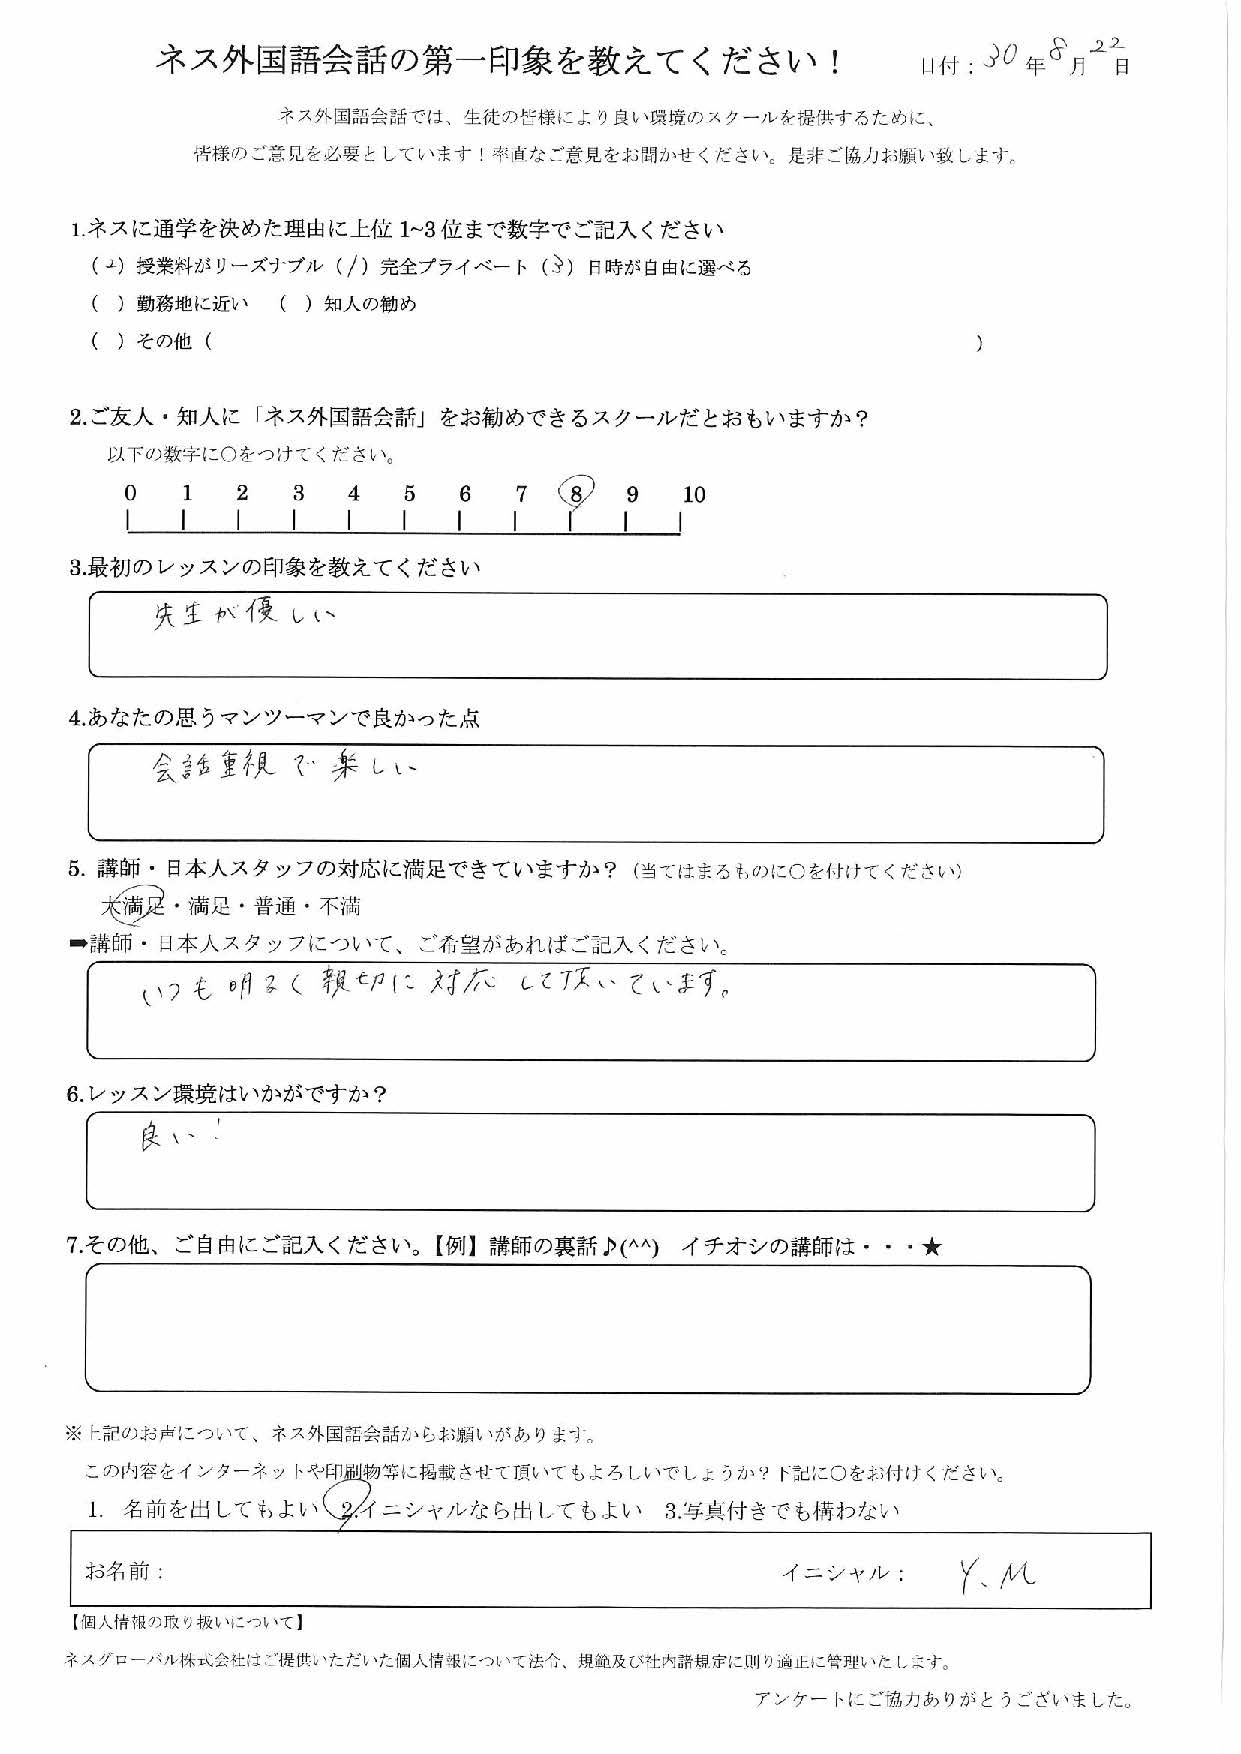 ネス外国語会話の第一印象を教えてください！ 日付：30年8月22日
ネス外国語会話では、生徒の皆様により良い環境のスクールを提供するために、
皆様のご意見を必要としています！率直なご意見をお聞かせください。是非ご協力お願い致します。
1.ネスに通学を決めた理由に上位1~3位まで数字でご記入ください
（2）授業料がリーズナブル（1）完全プライベート（3）日時が自由に選べる
（ ）勤務地に近い （ ）知人の勧め
（ ）その他（ ）
2.ご友人・知人に「ネス外国語会話」をお勧めできるスクールだとおもいますか？
以下の数字に○をつけてください。
0 1 2 3 4 5 6 7 8 9 10
3.最初のレッスンの印象を教えてください
先生が優しい
4.あなたの思うマンツーマンで良かった点
会話重視で楽しい
5. 講師・日本人スタッフの対応に満足できていますか？（当てはまるものに○を付けてください）
大満足・満足・普通・不満
➡講師・日本人スタッフについて、ご希望があればご記入ください。
いつも明るく親切に対応して頂いています。
6.レッスン環境はいかがですか？
良い！
7.その他、ご自由にご記入ください。【例】講師の裏話♪(^^) イチオシの講師は・・・★
※上記のお声について、ネス外国語会話からお願いがあります。
この内容をインターネットや印刷物等に掲載させて頂いてもよろしいでしょうか？下記に○をお付けください。
1. 名前を出してもよい 2.イニシャルなら出してもよい 3.写真付きでも構わない
お名前： イニシャル： Y.M
【個人情報の取り扱いについて】
ネスグローバル株式会社はご提供いただいた個人情報について法令、規範及び社内諸規定に則り適正に管理いたします。
アンケートにご協力ありがとうございました。